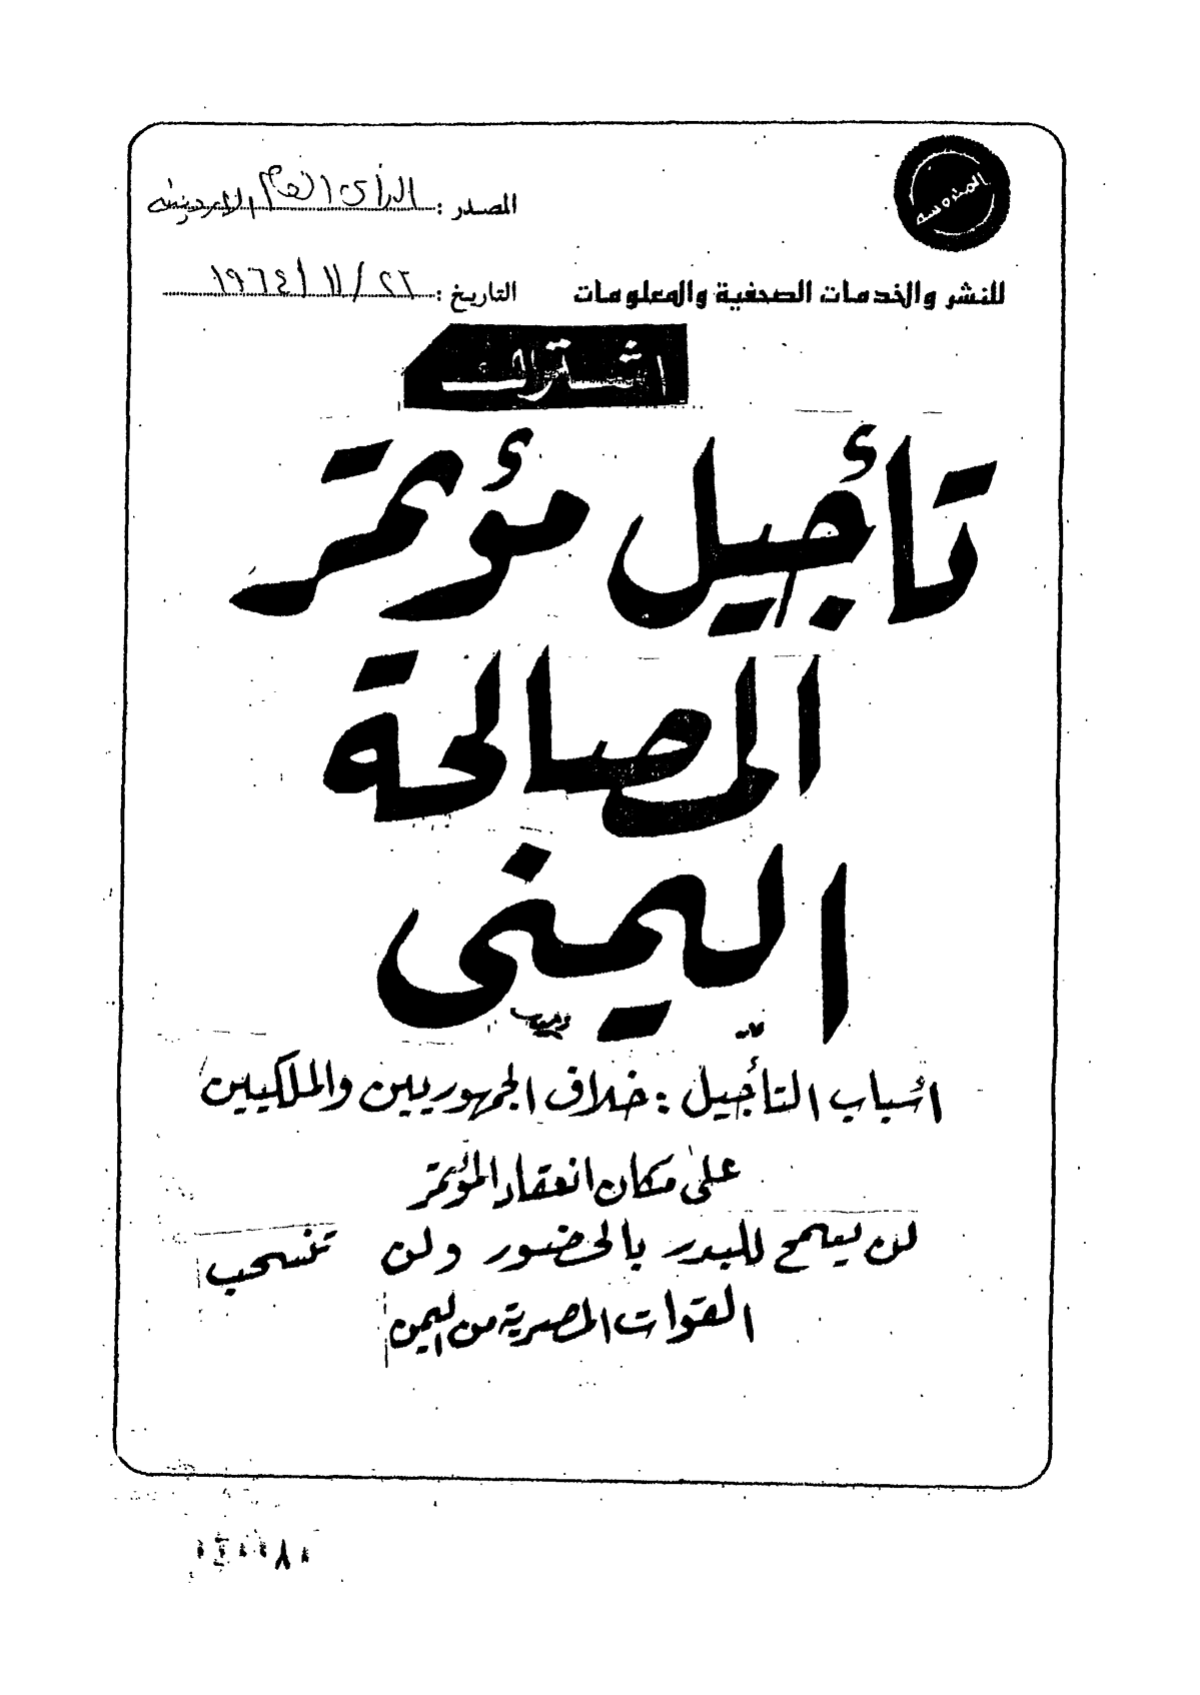 المحروسه
المصدر : الرأى العام الاردنيه
للنشر والخدمات الصحفية والمعلومات
التاريخ : ٢٢ / ١١ / ١٩٦٤
اشتراك
تأجيل مؤتمر
المصالحة
اليمنى
أسباب التأجيل : خلاف الجمهوريين والملكيين
على مكان انعقاد المؤتمر
لن يسمح للبدر بالحضور ولن تنسحب
القوات المصرية من اليمن